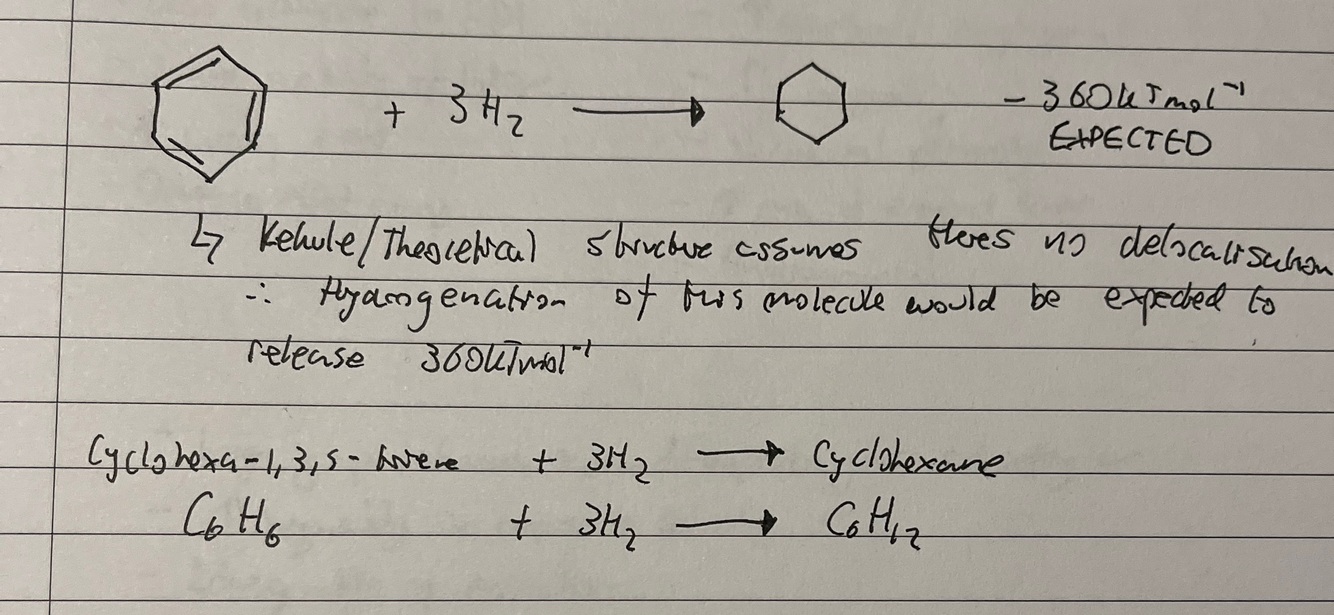 + 3H₂ ⟶ - 360kJmol⁻¹
EXPECTED
↳ Kekule/Theoretical structure assumes theres no delocalisation
∴ Hydrogenation of this molecule would be expected to
release 360kJmol⁻¹
Cyclohexa-1,3,5-triene + 3H₂ ⟶ Cyclohexane
C₆H₆ + 3H₂ ⟶ C₆H₁₂